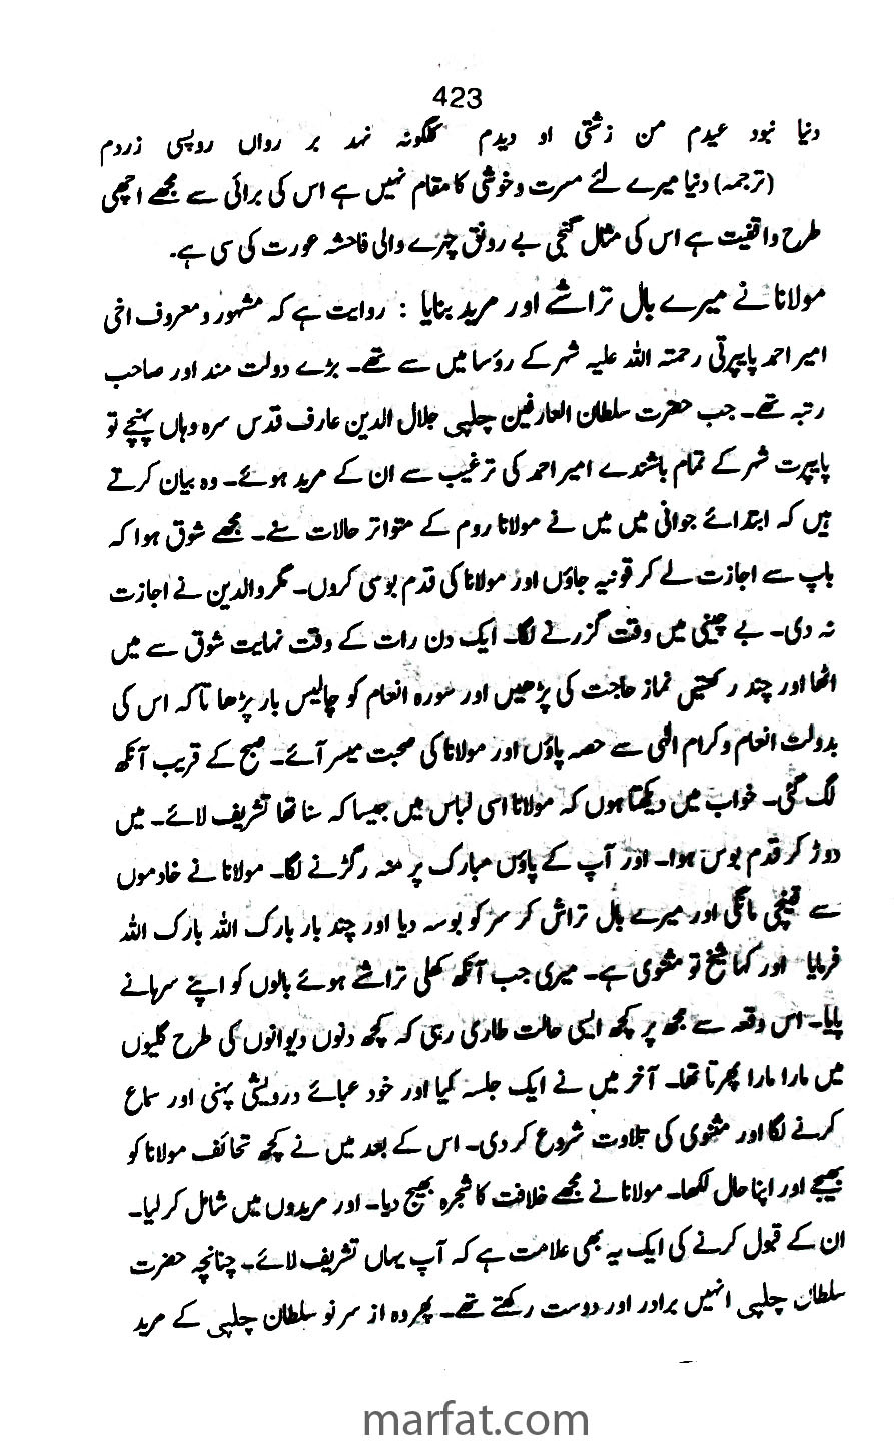 423
دنیا نبود عیدم من زشتی او دیدم گلگونہ نہد بر رواں روسپی زردم
(ترجمہ) دنیا میرے لئے مسرت و خوشی کا مقام نہیں ہے اس کی برائی سے مجھے اچھی
طرح واقفیت ہے اس کی مثال گنجی بے رونق چہرے والی فاحشہ عورت کی سی ہے۔
مولانا نے میرے بال تراشے اور مرید بنایا : روایت ہے کہ مشہور و معروف اخی
امیر احمد پایپرتی رحمتہ اللہ علیہ شہر کے رؤسا میں سے تھے۔ بڑے دولت مند اور صاحب
رتبہ تھے۔ جب حضرت سلطان العارفین چلپی جلال الدین عارف قدس سرہ وہاں پہنچے تو
پایپرت شہر کے تمام باشندے امیر احمد کی ترغیب سے ان کے مرید ہوئے۔ وہ بیان کرتے
ہیں کہ ابتدائے جوانی میں میں نے مولانا روم کے متواتر حالات سنے۔ مجھے شوق ہوا کہ
باپ سے اجازت لے کر قونیہ جاؤں اور مولانا کی قدم بوسی کروں۔ مگر والدین نے اجازت
نہ دی۔ بے چینی میں وقت گزرنے لگا۔ ایک دن رات کے وقت نہایت شوق سے میں
اٹھا اور چند رکعتیں نماز حاجت کی پڑھیں اور سورہ انعام کو چالیس بار پڑھا تاکہ اس کی
بدولت انعام و کرام الٰہی سے حصہ پاؤں اور مولانا کی صحبت میسر آئے۔ صبح کے قریب آنکھ
لگ گئی۔ خواب میں دیکھتا ہوں کہ مولانا اسی لباس میں جیسا کہ سنا تھا تشریف لائے۔ میں
دوڑ کر قدم بوس ہوا۔ اور آپ کے پاؤں مبارک پر منہ رگڑنے لگا۔ مولانا نے خادموں
سے قینچی مانگی اور میرے بال تراش کر سر کو بوسہ دیا اور چند بار بارک اللہ بارک اللہ
فرمایا اور کہا شیخ تو مثنوی ہے۔ میری جب آنکھ کھلی تراشے ہوئے بالوں کو اپنے سرہانے
پایا۔ اس وقعہ سے مجھ پر کچھ ایسی حالت طاری رہی کہ کچھ دنوں دیوانوں کی طرح گلیوں
میں مارا مارا پھرتا تھا۔ آخر میں نے ایک جلسہ کیا اور خود عبائے درویشی پہنی اور سماع
کرنے لگا اور مثنوی کی تلاوت شروع کر دی۔ اس کے بعد میں نے کچھ تحائف مولانا کو
بھیجے اور اپنا حال لکھا۔ مولانا نے مجھے خلافت کا شجرہ بھیج دیا۔ اور مریدوں میں شامل کر لیا۔
ان کے قبول کرنے کی ایک یہ بھی علامت ہے کہ آپ یہاں تشریف لائے۔ چنانچہ حضرت
سلطان چلپی انہیں برادر اور دوست رکھتے تھے۔ پھر وہ از سر نو سلطان چلپی کے مرید
marfat.com